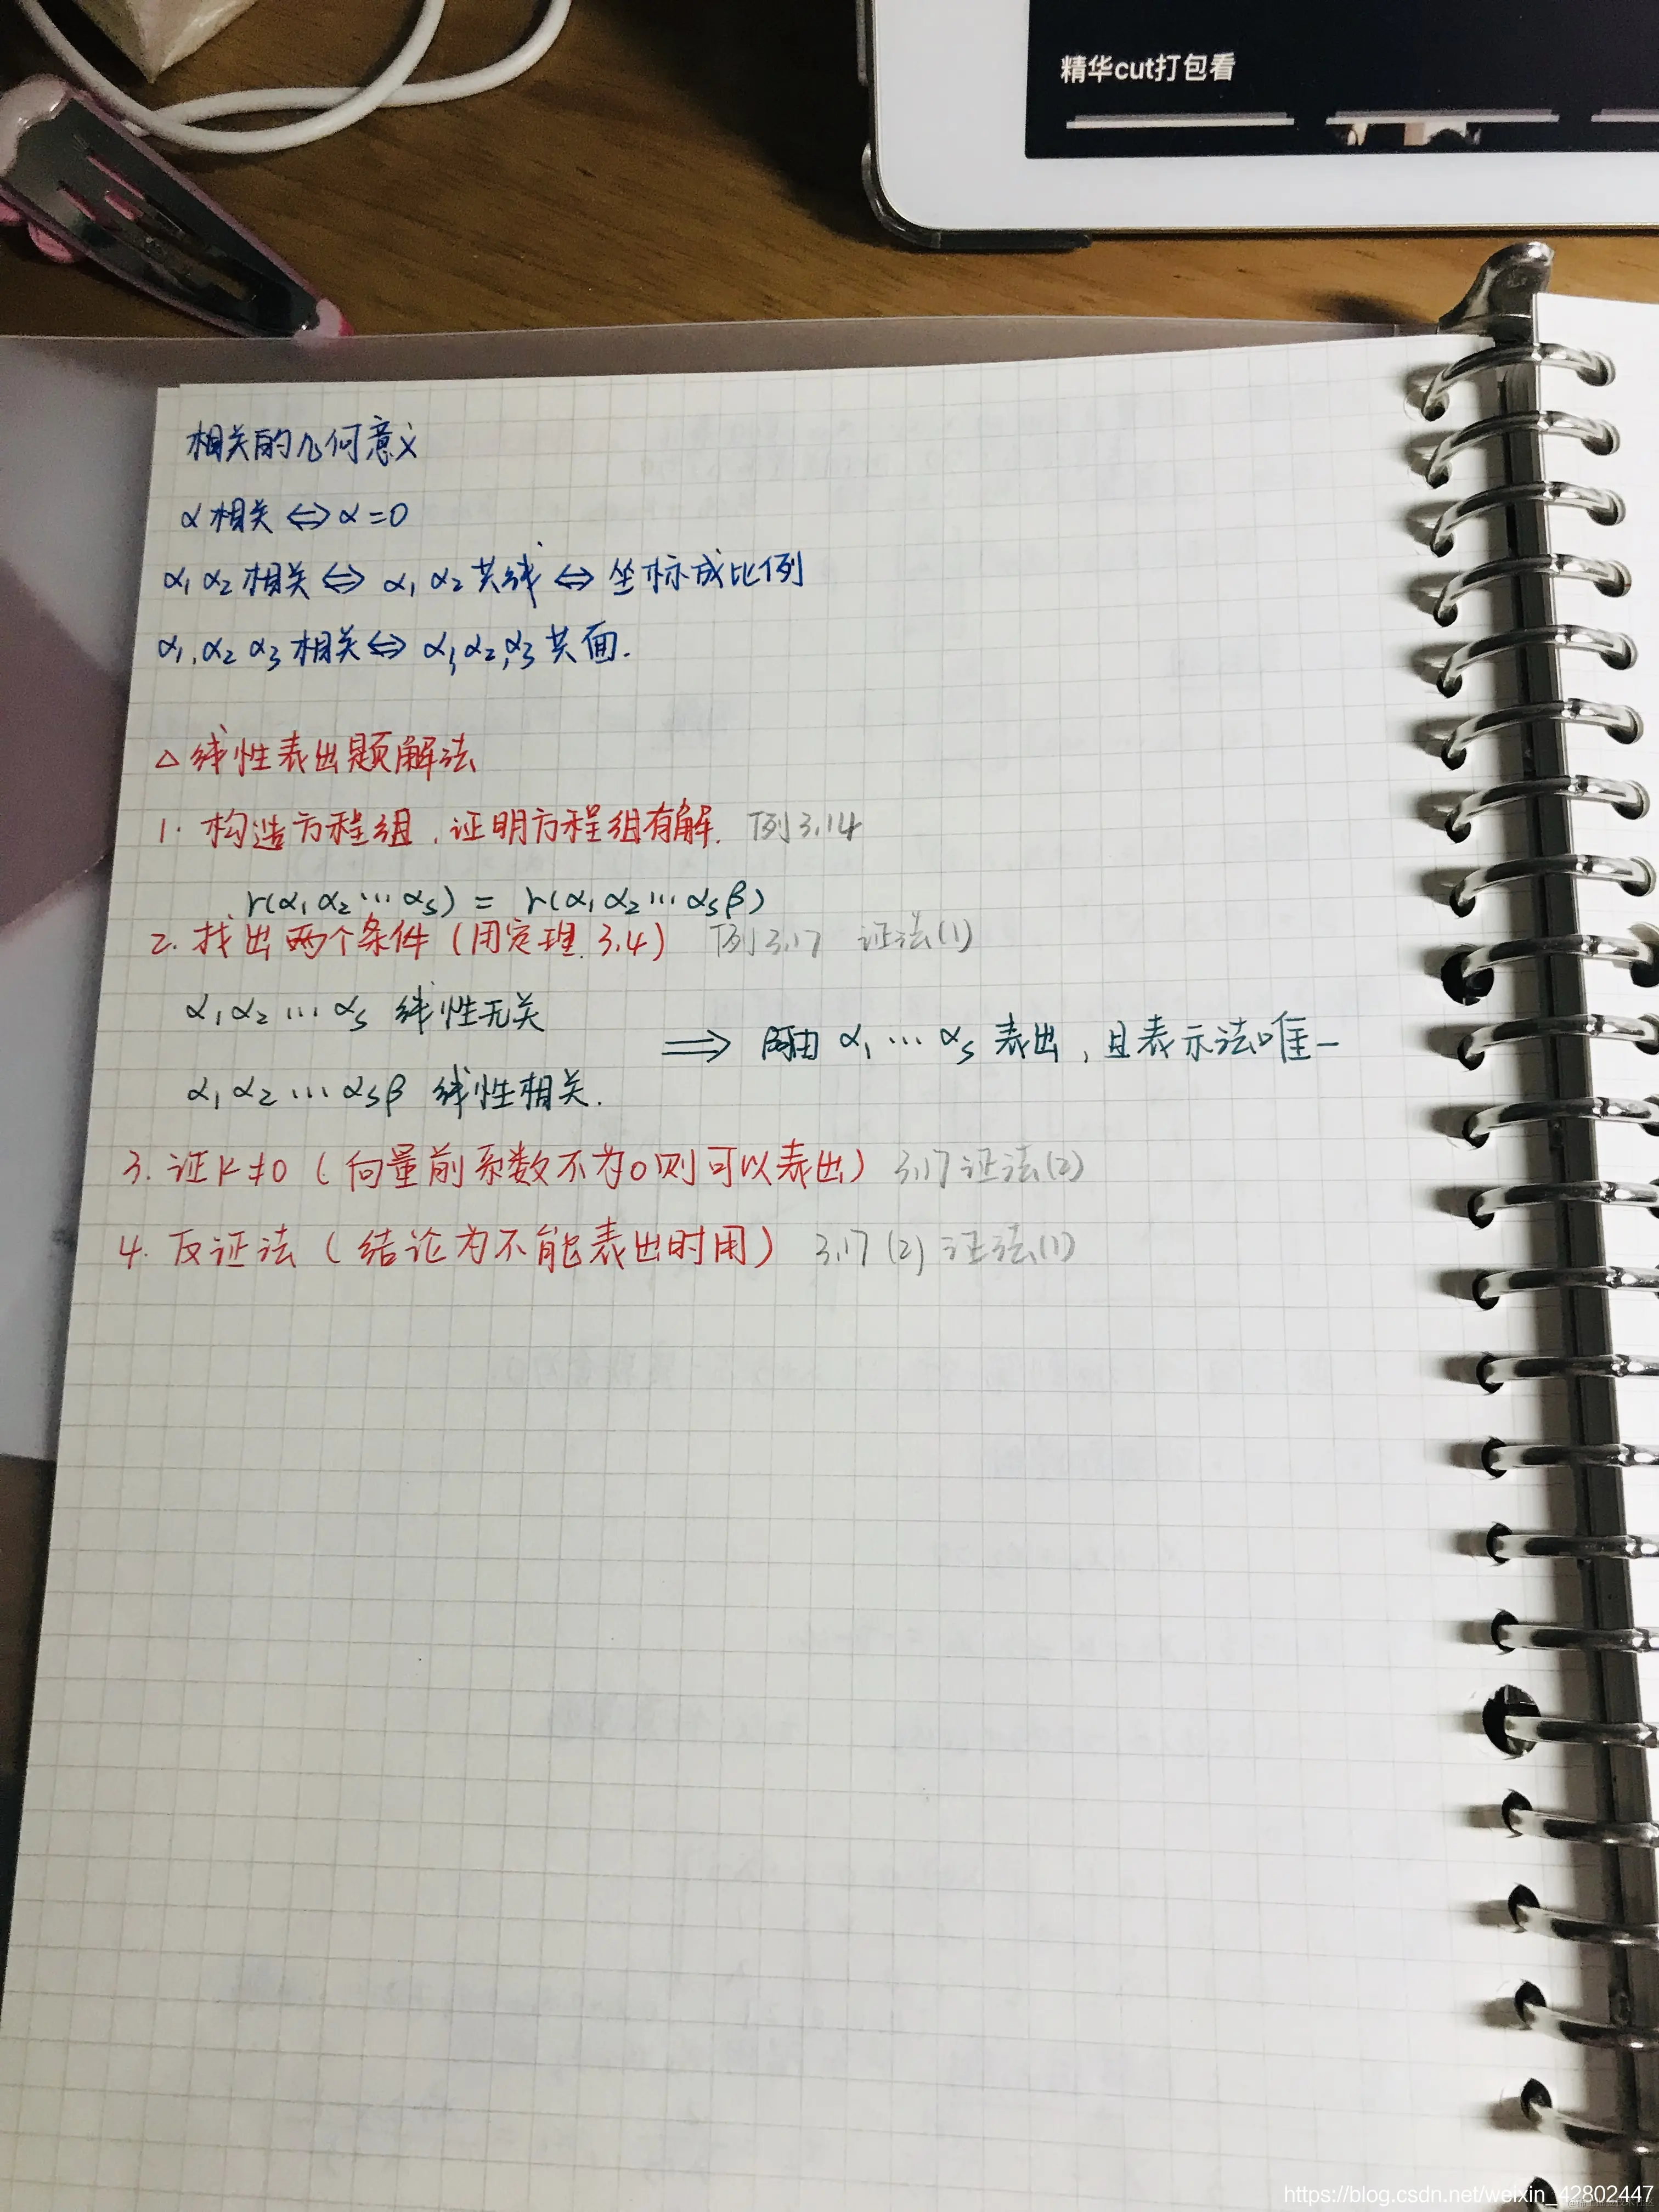 精华cut打包看
相关的几何意义
α 相关 ⇔ α=0
α₁ α₂ 相关 ⇔ α₁ α₂ 共线 ⇔ 坐标成比例
α₁,α₂ α₃ 相关 ⇔ α₁,α₂,α₃ 共面.
△ 线性表出题解法
1. 构造方程组,证明方程组有解. 例3.14
r(α₁ α₂ … αs) = r(α₁ α₂ … αs β)
2. 找出两个条件(用定理 3.4) 例3.17 证法(1)
α₁ α₂ … αs 线性无关
⇒ 由 α₁ … αs 表出,且表示法唯一
α₁ α₂ … αs β 线性相关.
3. 证 k≠0 (向量前系数不为0则可以表出) 3.17 证法(2)
4. 反证法 (结论为不能表出时用) 3.17 (2) 证法(1)
https://blog.csdn.net/weixin_42802447